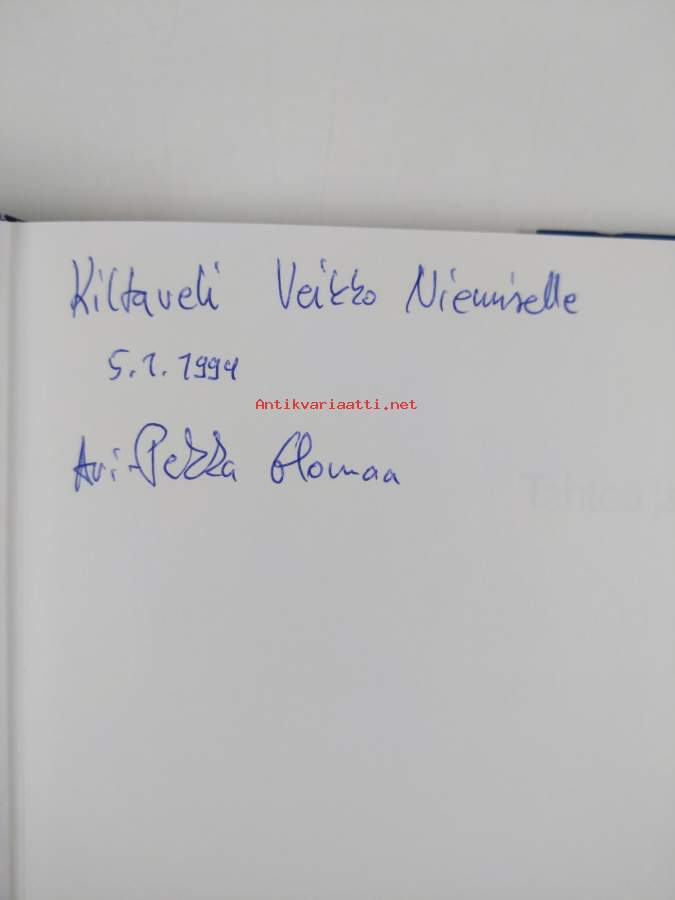 Kiltaveli Veikko Niemiselle
5.1.1994
Antikvariaatti.net
Ari-Pekka Elomaa